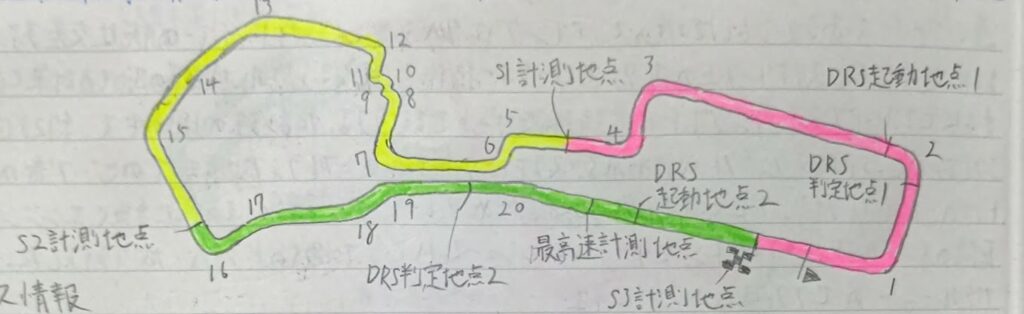 13
12
S1計測地点
3
DRS起動地点1
11
10
14
9
8
5
4
2
15
6
7
DRS
起動地点2
DRS
判定地点1
17
19
20
S2計測地点
18
最高速計測地点
16
DRS判定地点2
S3計測地点
1
ス情報